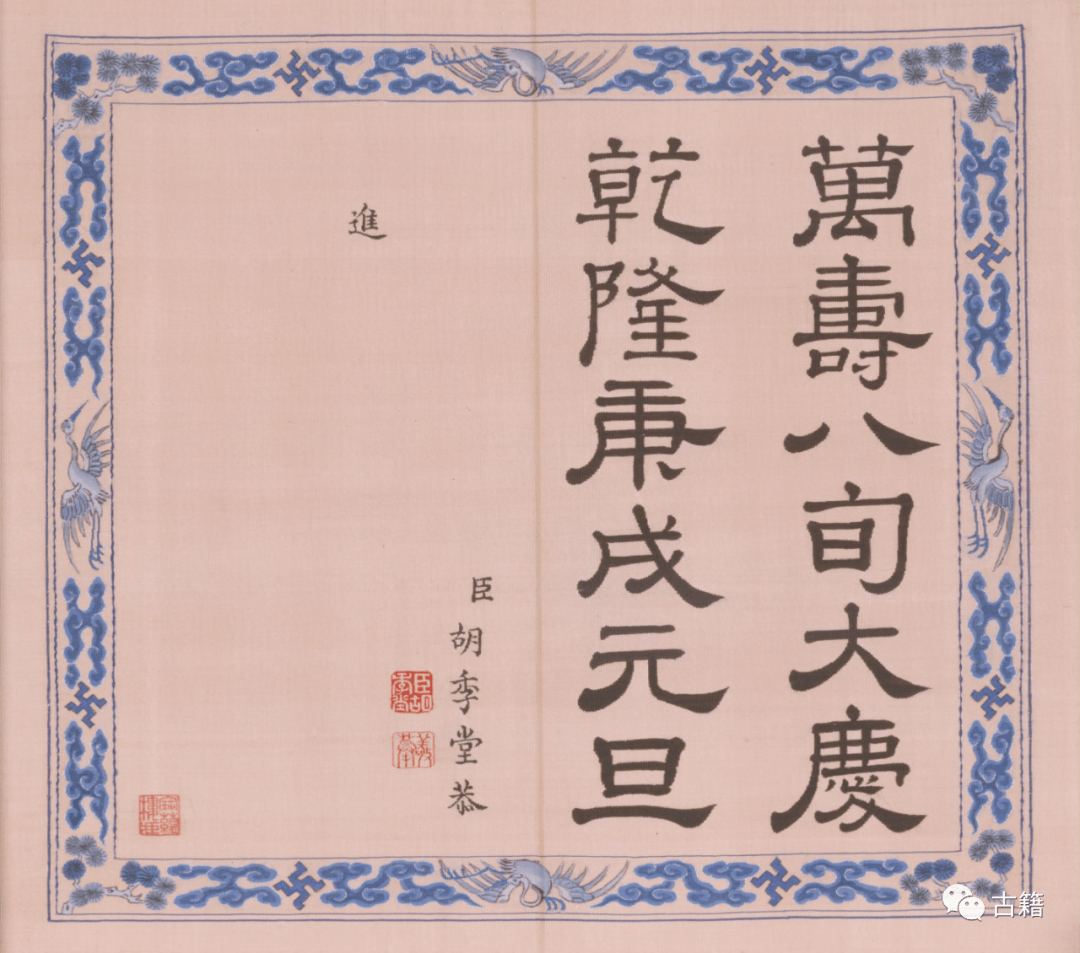 萬壽八旬大慶
乾隆庚戌元旦
臣胡季堂恭
進
臣胡季堂
古籍